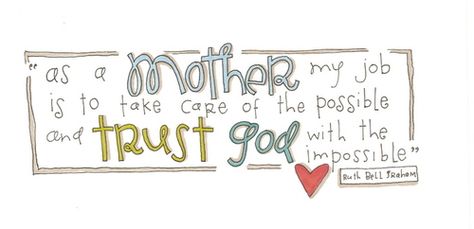 "as a mother my job
is to take care of the possible
and trust god with the
impossible"
Ruth Bell Graham